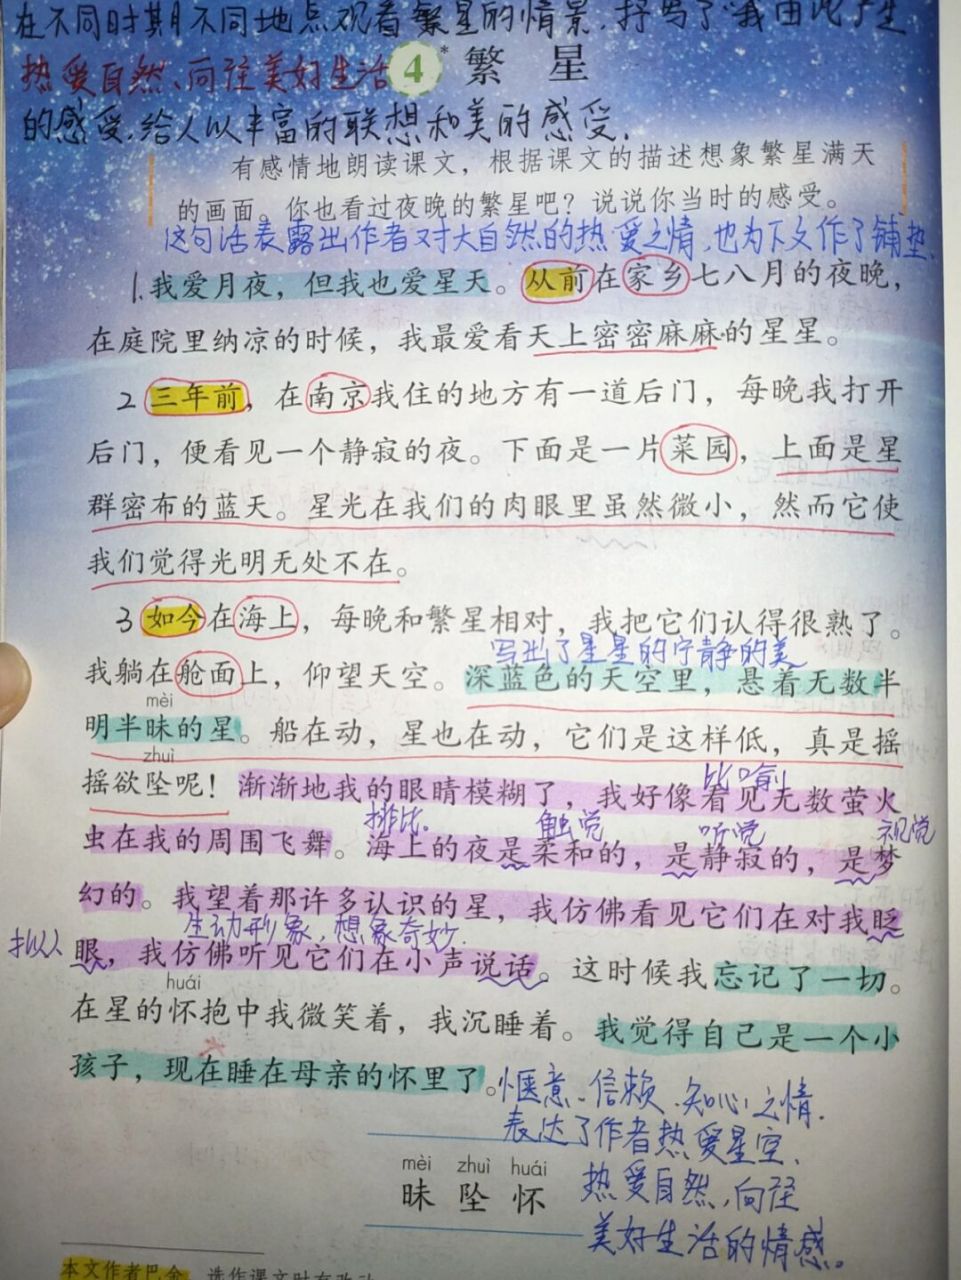 在不同时期不同地点观看繁星的情景,抒写了我由此产生
热爱自然、向往美好生活
4* 繁 星
的感受,给人以丰富的联想和美的感受.
有感情地朗读课文，根据课文的描述想象繁星满天
的画面。你也看过夜晚的繁星吧？说说你当时的感受。
这句话表露出作者对大自然的热爱之情,也为下文作了铺垫.
1.我爱月夜，但我也爱星天。从前在家乡七八月的夜晚，
在庭院里纳凉的时候，我最爱看天上密密麻麻的星星。
2 三年前，在南京我住的地方有一道后门，每晚我打开
后门，便看见一个静寂的夜。下面是一片菜园，上面是星
群密布的蓝天。星光在我们的肉眼里虽然微小，然而它使
我们觉得光明无处不在。
3 如今在海上，每晚和繁星相对，我把它们认得很熟了。
写出了星星的宁静的美
我躺在舱面上，仰望天空。深蓝色的天空里，悬着无数半
mèi
明半昧的星。船在动，星也在动，它们是这样低，真是摇
zhuì
摇欲坠呢！渐渐地我的眼睛模糊了，我好像看见无数萤火
比喻
虫在我的周围飞舞。海上的夜是柔和的，是静寂的，是梦
排比。 触觉 听觉 视觉
幻的。我望着那许多认识的星，我仿佛看见它们在对我眨
生动形象,想象奇妙.
拟人
眼，我仿佛听见它们在小声说话。这时候我忘记了一切。
huái
在星的怀抱中我微笑着，我沉睡着。我觉得自己是一个小
孩子，现在睡在母亲的怀里了。
惬意、信赖、知心之情.
表达了作者热爱星空、
热爱自然,向往
美好生活的情感。
mèi zhuì huái
昧 坠 怀
本文作者巴金，选作课文时有改动